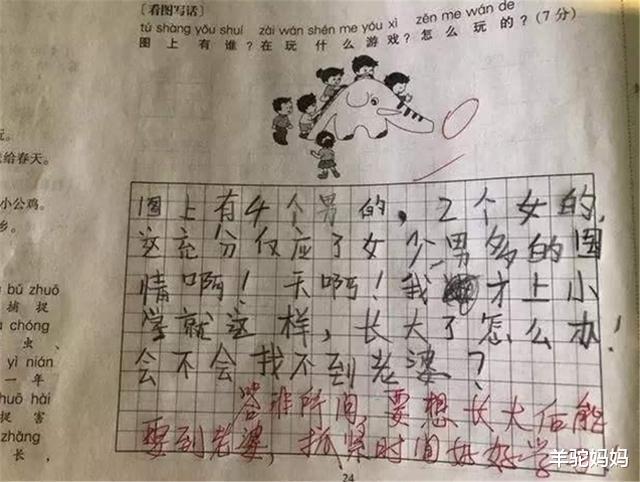 [看图写话]
tú shàng yǒu shuí zài wán shén me yóu xì zěn me wán de
图上有谁?在玩什么游戏?怎么玩的?(7分)
玩。
给春天。
小公鸡。
乡。
bǔ zhuō
捕捉
chóng
虫、
yì nián
一年
huō hài
捉害
zhǎng
长,
图上有4个男的,2个女的,
这充分仅应了女少男多的国
情啊!天啊!我才上小
学就这样,长大了怎么办!
会不会找不到老婆?
答非所问,要想长大后能
娶到老婆,抓紧时间好好学
24
羊驼妈妈